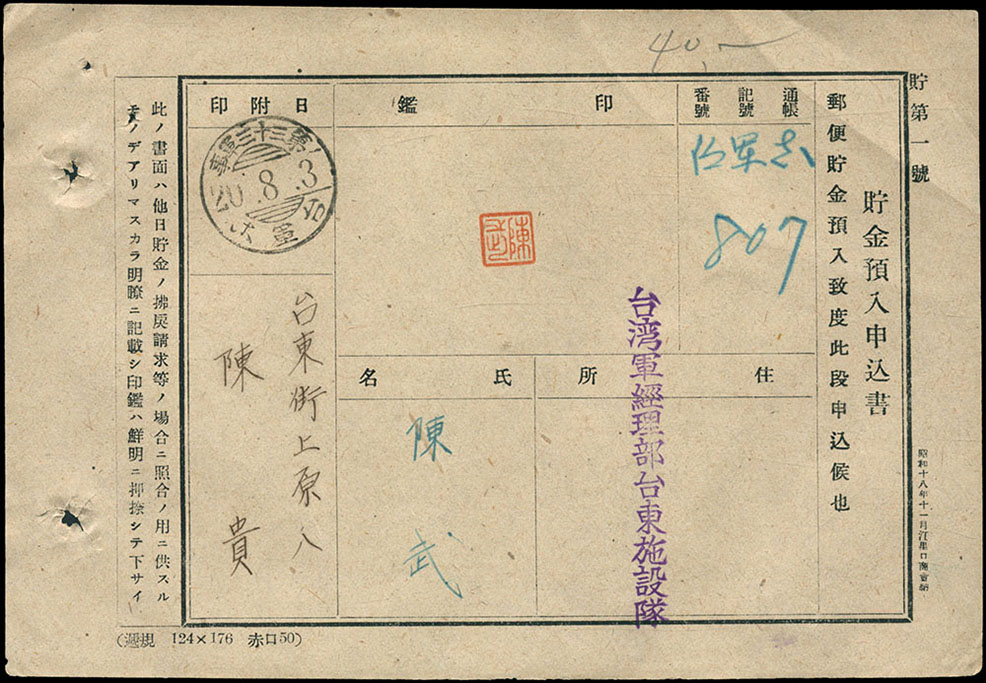 40.—
貯第一號
貯金預入申込書
郵便貯金預入致度此段申込候也
通帳
記號
番號
軍志
807
印鑑
陳武
日附印
第三十三軍事
20.8.3
台軍
住所
台湾軍經理部台東施設隊
氏名
陳武
台東街上原八
陳貴
此ノ書面ハ他日貯金ノ拂戻請求等ノ場合ニ照合ノ用ニ供スル
モノデアリマスカラ明瞭ニ記載シ印鑑ハ鮮明ニ押捺シテ下サイ
昭和十八年十一月
(遞規 124×176 赤口50)